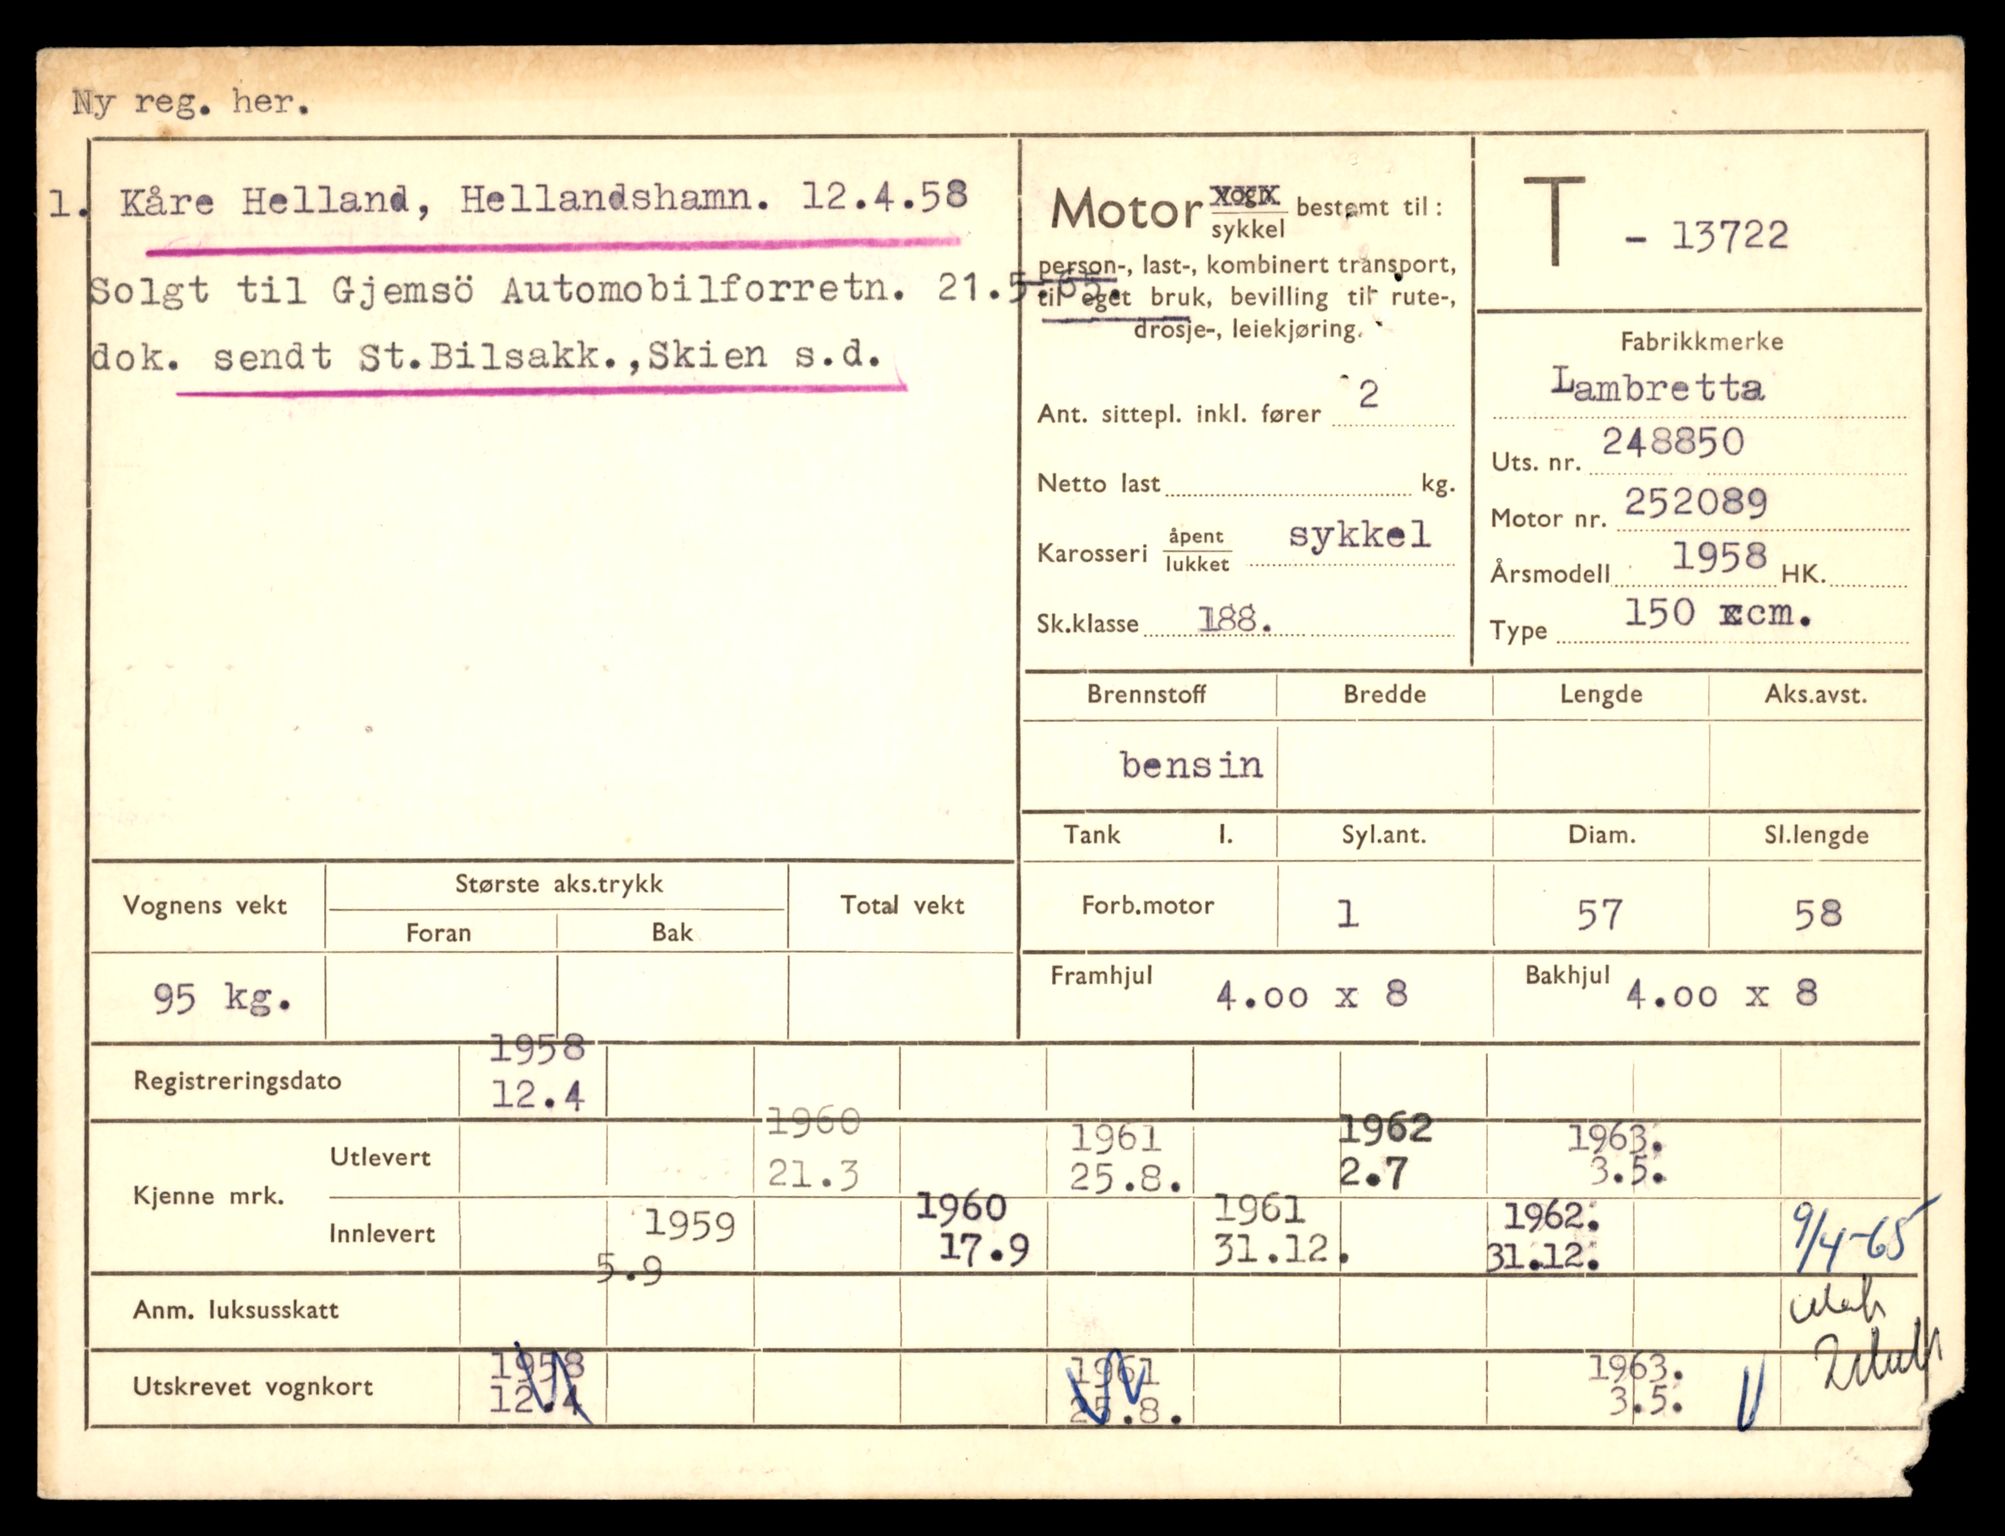 Ny reg. her.
1. Kåre Helland, Hellandshamn. 12.4.58
Solgt til Gjemsö Automobilforretn. 21.5.65.
dok. sendt St.Bilsakk.,Skien s.d.
Motor vogn/sykkel bestemt til:
person-, last-, kombinert transport,
til eget bruk, bevilling til rute-,
drosje-, leiekjøring.
Ant. sittepl. inkl. fører 2
Netto last kg.
Karosseri åpent/lukket sykkel
Sk.klasse 188.
T - 13722
Fabrikkmerke
Lambretta
Uts. nr. 248850
Motor nr. 252089
Årsmodell 1958 HK.
Type 150 ccm.
Brennstoff Bredde Lengde Aks.avst.
bensin
Tank l. Syl.ant. Diam. Sl.lengde
Forb.motor 1 57 58
Framhjul 4.00 x 8 Bakhjul 4.00 x 8
Vognens vekt Største aks.trykk Total vekt
Foran Bak
95 kg.
Registreringsdato 1958
12.4
Kjenne mrk.
Utlevert 1960 1961 1962 1963.
21.3 25.8. 2.7 3.5.
Innlevert 1959 1960 1961 1962. 9/4-65
5.9 17.9 31.12. 31.12.
Anm. luksusskatt
Utskrevet vognkort 1958 1961 1963.
12.4 25.8. 3.5.